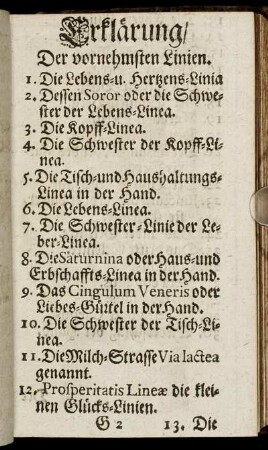 Erklärung/
Der vornehmsten Linien.
1. Die Lebens-u. Hertzens-Linia
2. Dessen Soror oder die Schwe-
ster der Lebens-Linea.
3. Die Kopff-Linea.
4. Die Schwester der Kopff-Li-
nea.
5. Die Tisch-und Haushaltungs-
Linea in der Hand.
6. Die Lebens-Linea.
7. Die Schwester-Linie der Le-
ber-Linea.
8. Die Saturnina oder Haus-und
Erbschaffts-Linea in der Hand.
9. Das Cingulum Veneris oder
Liebes-Gürtel in der Hand.
10. Die Schwester der Tisch-Li-
nea.
11. Die Milch-Strasse Via lactea
genannt.
12. Prosperitatis Lineæ die klei-
nen Glücks-Linien.
G 2 13. Die